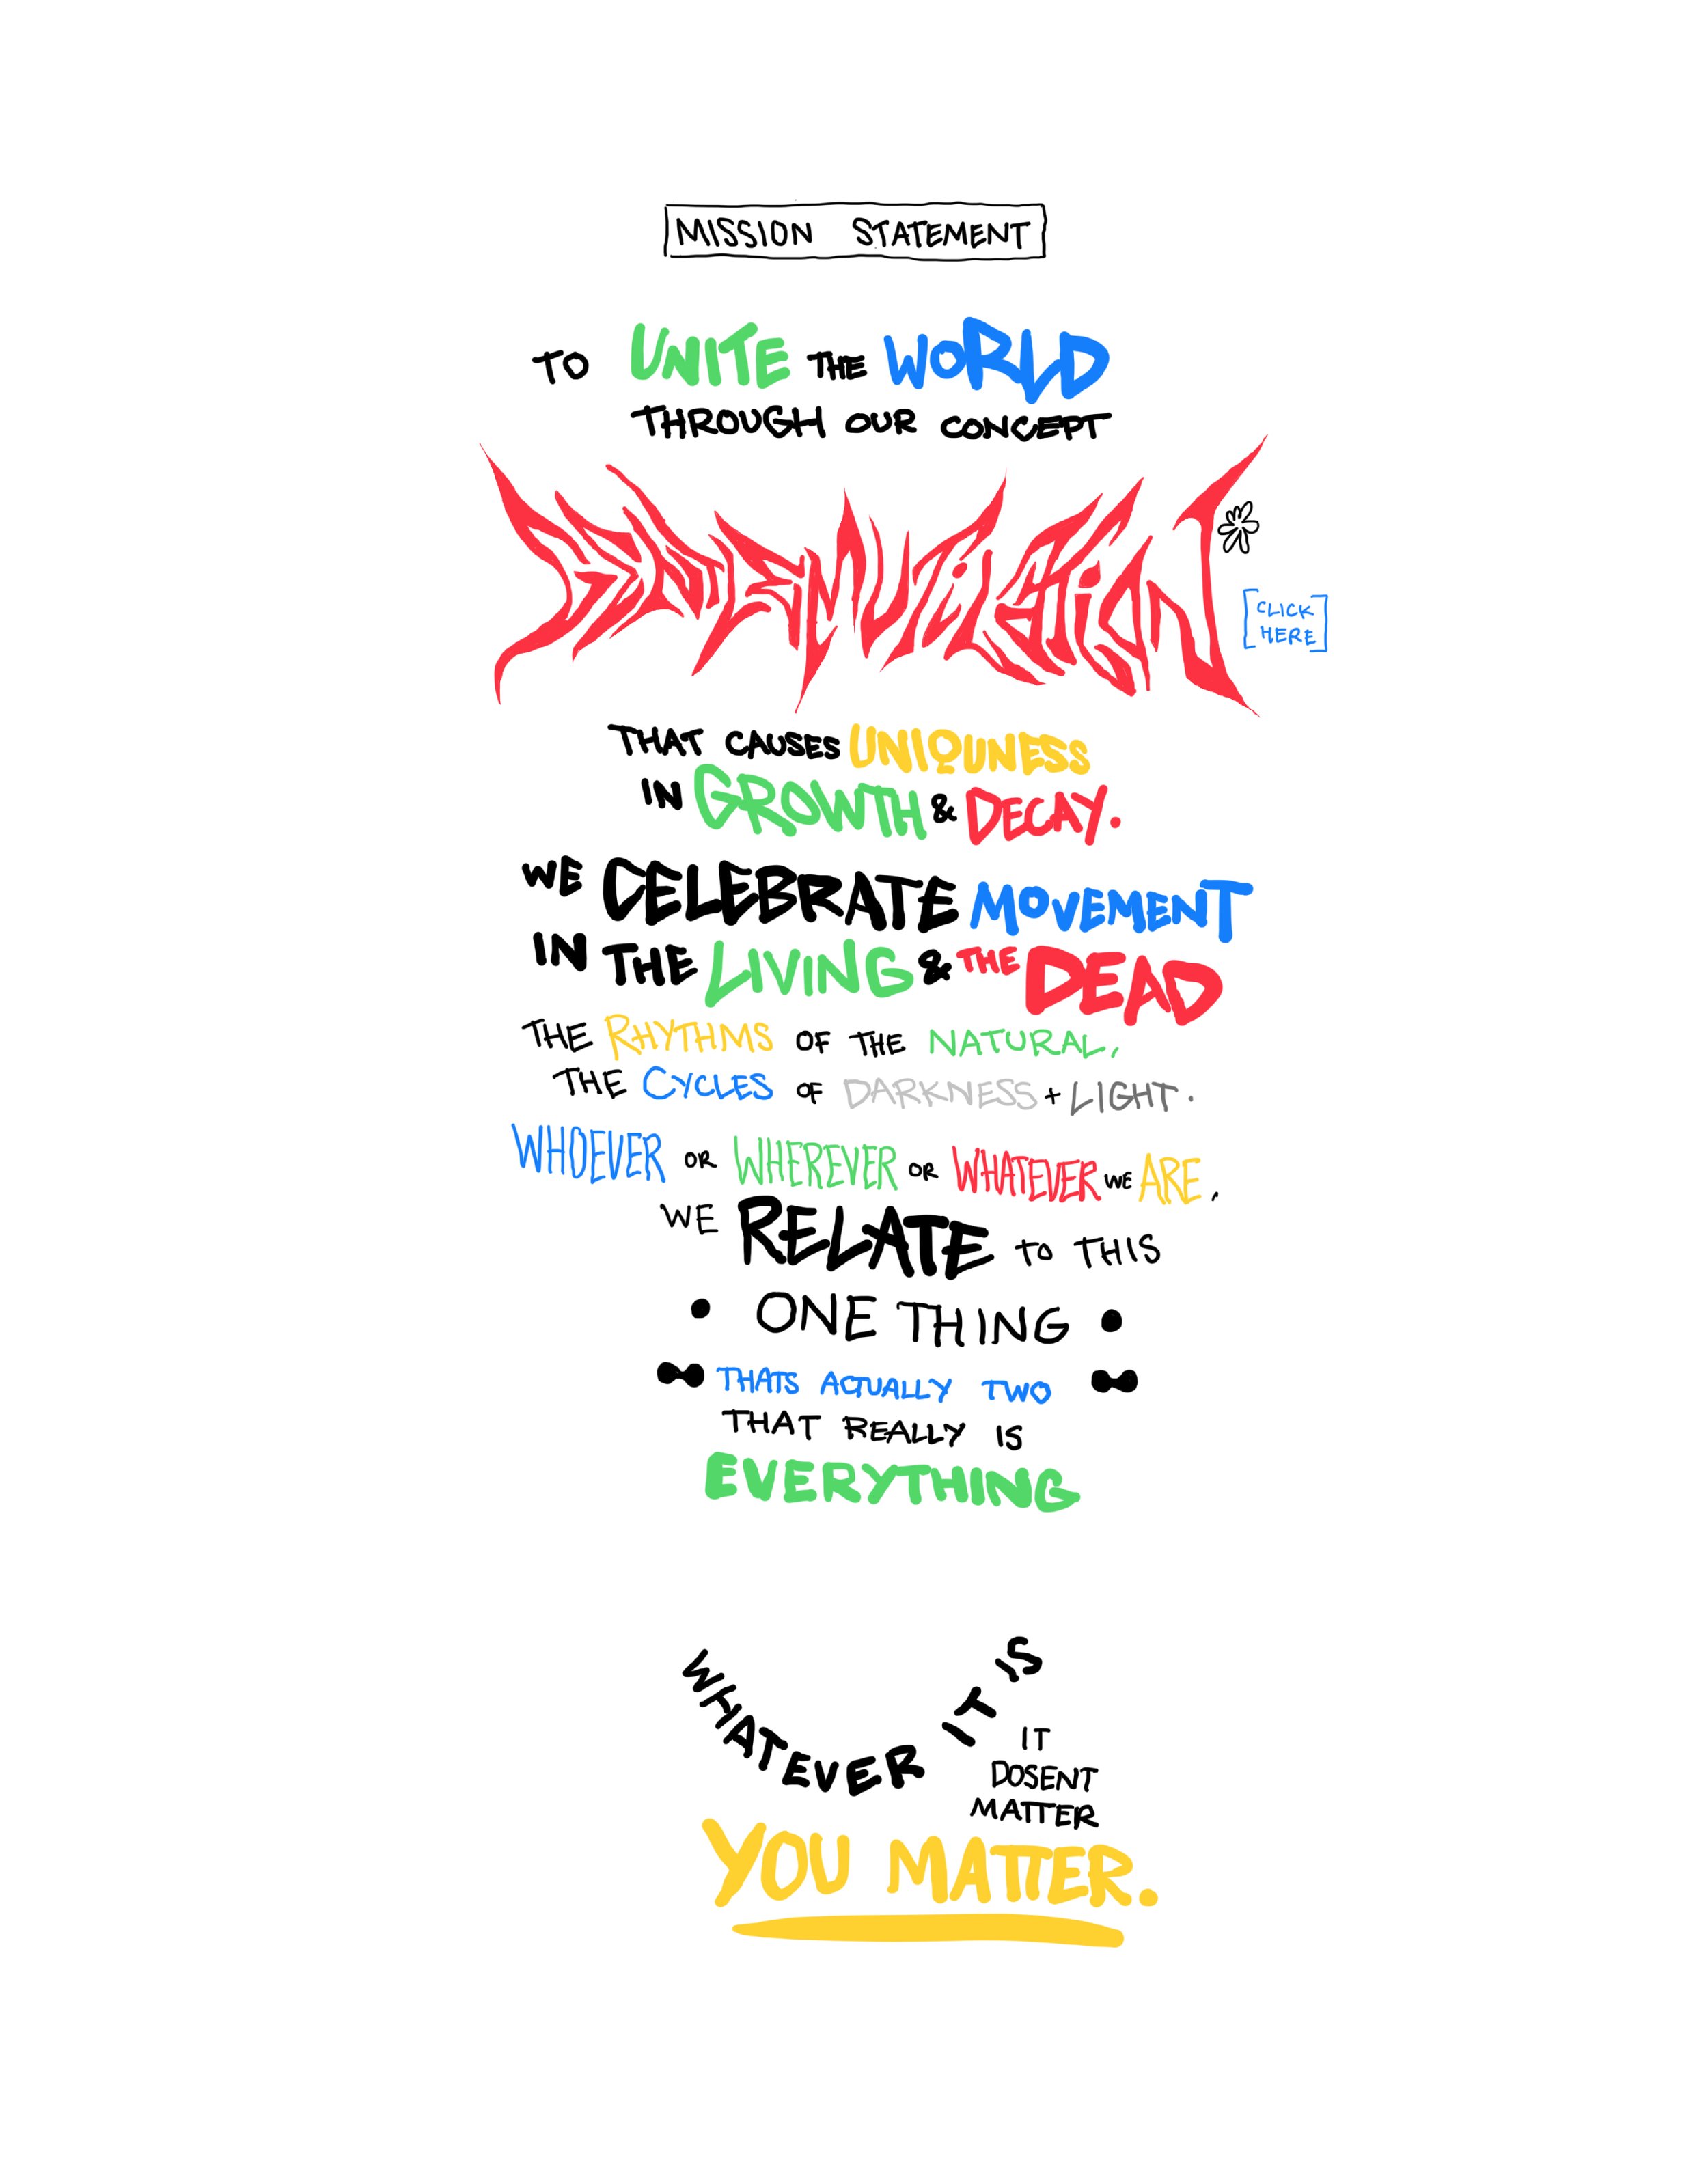 MISSION STATEMENT
TO UNITE THE WORLD
THROUGH OUR CONCEPT
[CLICK
HERE]
THAT CAUSES UNIQUNESS
IN GROWTH & DECAY.
WE CELEBRATE MOVEMENT
IN THE LIVING & THE DEAD
THE RHYTHMS OF THE NATURAL,
THE CYCLES OF DARKNESS + LIGHT.
WHOEVER OR WHEREVER OR WHATEVER WE ARE,
WE RELATE TO THIS
• ONE THING •
THATS ACTUALLY TWO
THAT REALLY IS
EVERYTHING
WHATEVER IT IS
IT
DOSENT
MATTER
YOU MATTER.